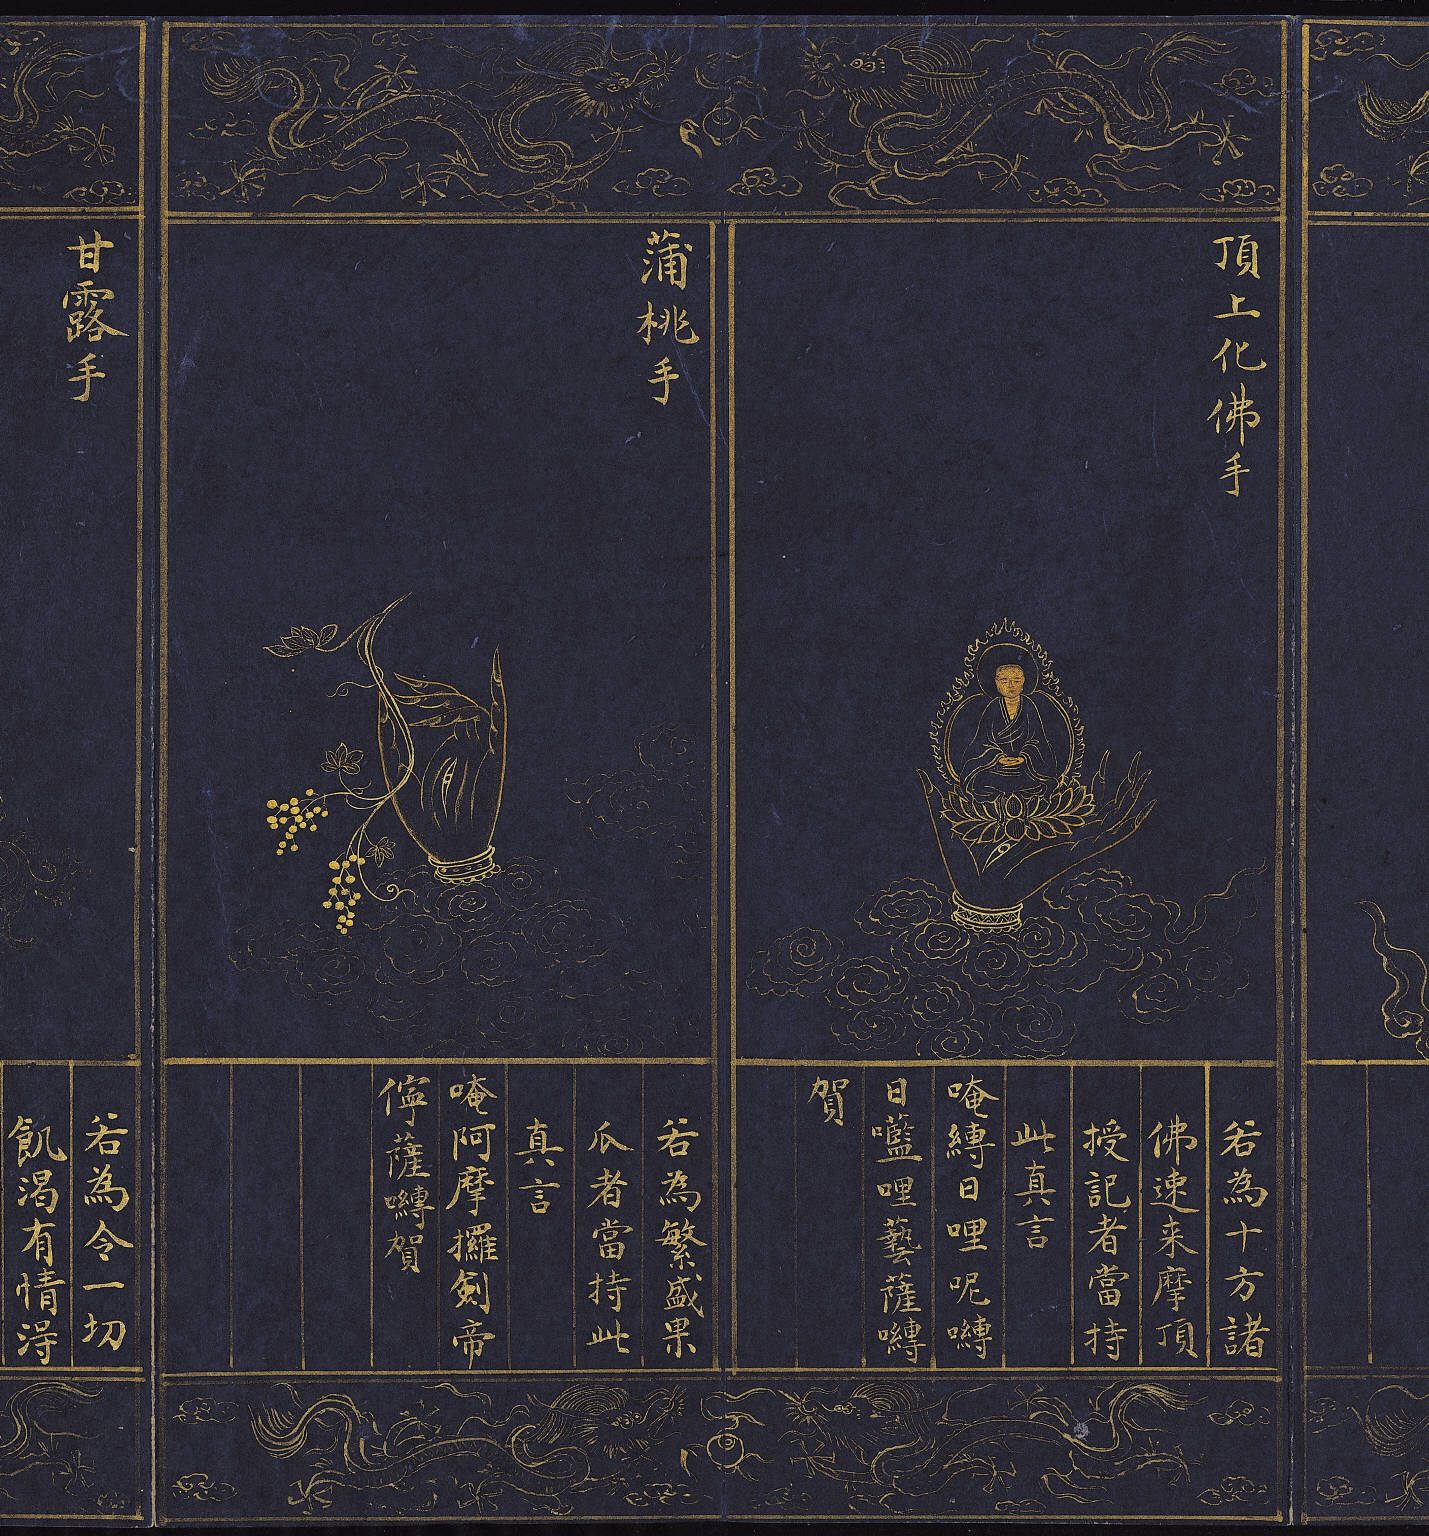 頂上化佛手
若為十方諸
佛速来摩頂
授記者當持
此真言
唵嚩日哩呢嚩
日囕哩藝薩嚩
賀
蒲桃手
若為繁盛果
瓜者當持此
真言
唵阿摩攞劍帝
儜薩嚩賀
甘露手
若為令一切
飢渴有情淂